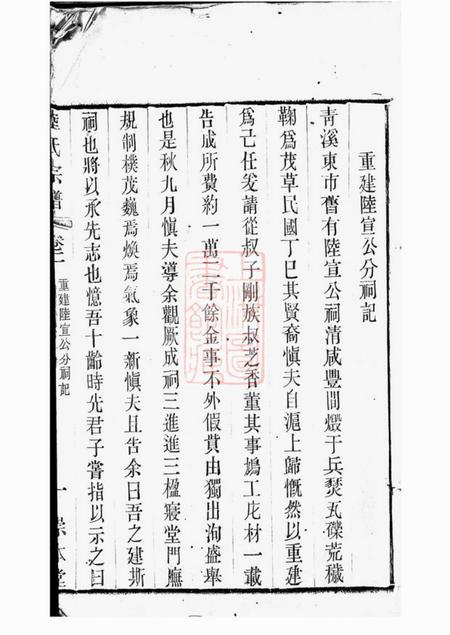 重建陸宣公分祠記
青溪東市舊有陸宣公祠清咸豐間燬于兵燹瓦礫荒穢
鞠為茂草民國丁巳其賢裔愼夫自滬上歸慨然以重建
為己任爰請從叔子剛族叔芝香董其事鳩工庀材一載
告成所費約一萬二千餘金事不外假貲由獨出洵盛舉
也是秋九月愼夫導余觀厥成祠三進進三楹寢堂門廡
規制樸茂巍焉煥焉氣象一新愼夫且告余曰吾之建斯
祠也將以承先志也憶吾十齡時先君子嘗指以示之曰
陸氏宗譜
卷一
重建陸宣公分祠記
一